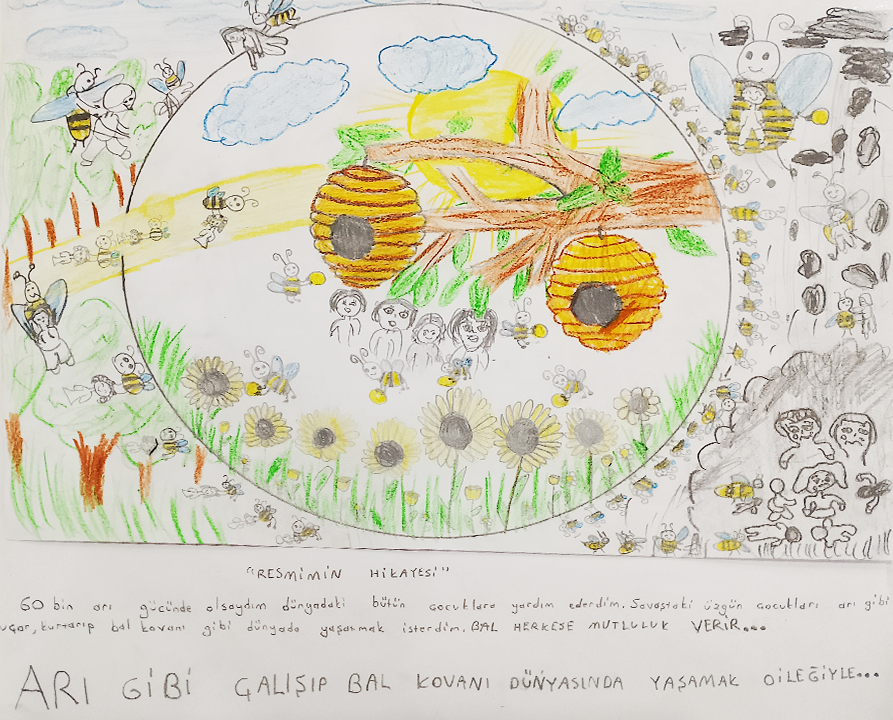 "RESMİMİN HİKAYESİ"
60 bin arı gücünde olsaydım dünyadaki bütün çocuklara yardım ederdim. Savaştaki üzgün çocukları arı gibi
uçar, kurtarıp bal kovanı gibi dünyada yaşatmak isterdim. BAL HERKESE MUTLULUK VERİR...
ARI GİBİ ÇALIŞIP BAL KOVANI DÜNYASINDA YAŞAMAK DİLEĞİYLE...